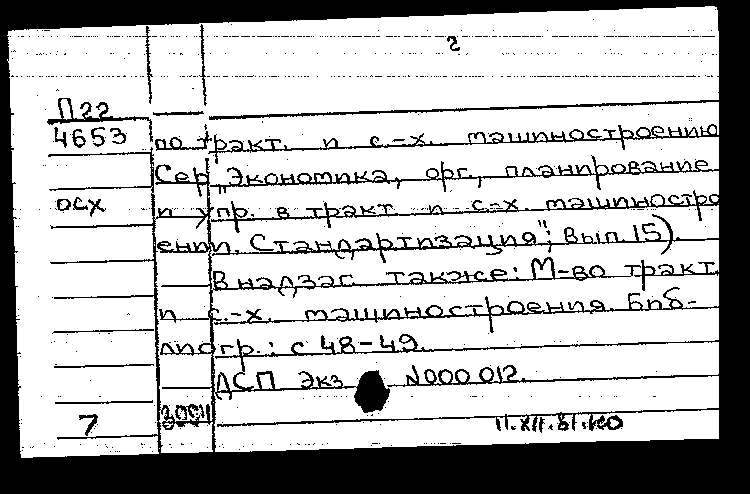 2
П22
4653 по тракт. и с.-х. машиностроению
Сер „Экономика, орг., планирование
осх и упр. в тракт и с-х. машиностро
ении. Стандартизация"; Вып. 15).
В надзаг также: М-во тракт.
и с.-х. машиностроения. Биб-
лиогр.: с 48-49.
ДСП Экз N000012.
7